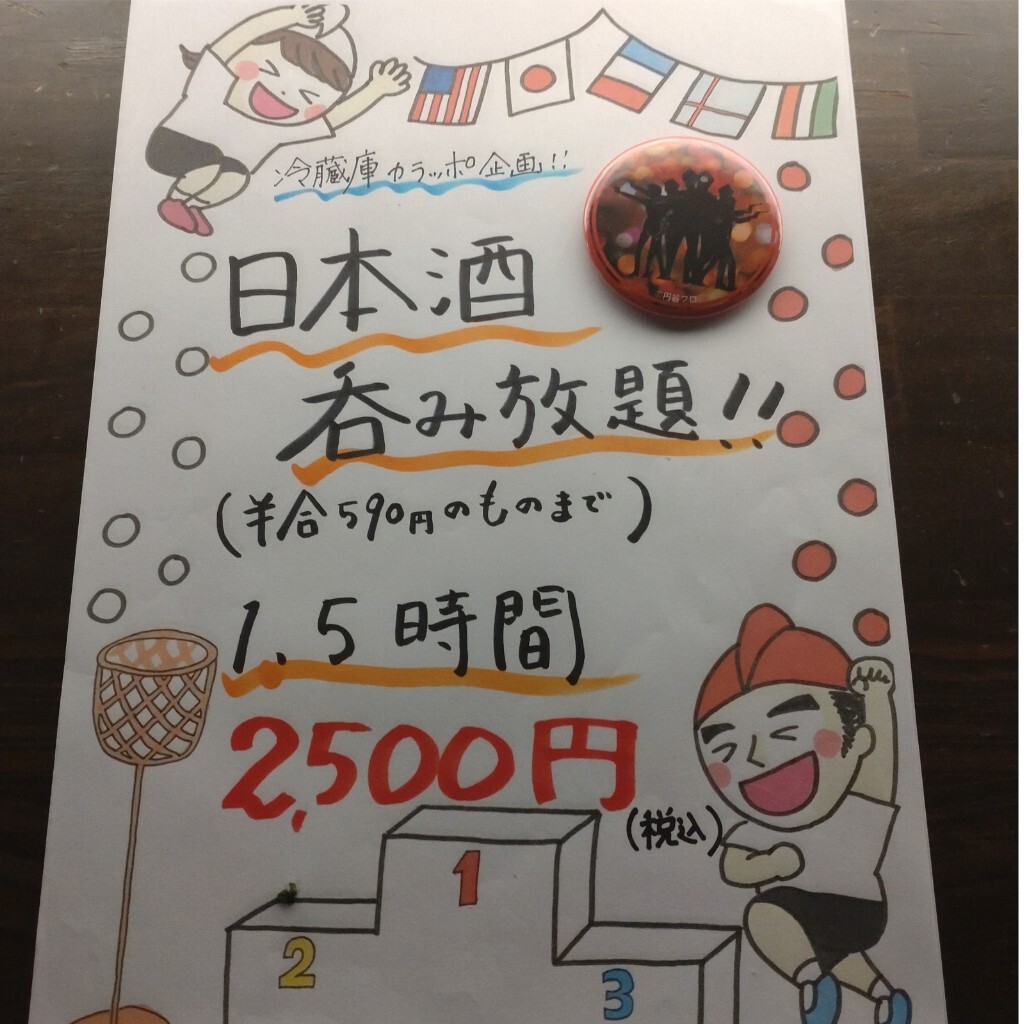 冷蔵庫カラッポ企画!!
円谷プロ
日本酒
呑み放題!!
(半合590円のものまで)
1.5時間
2,500円
(税込)
1
2
3